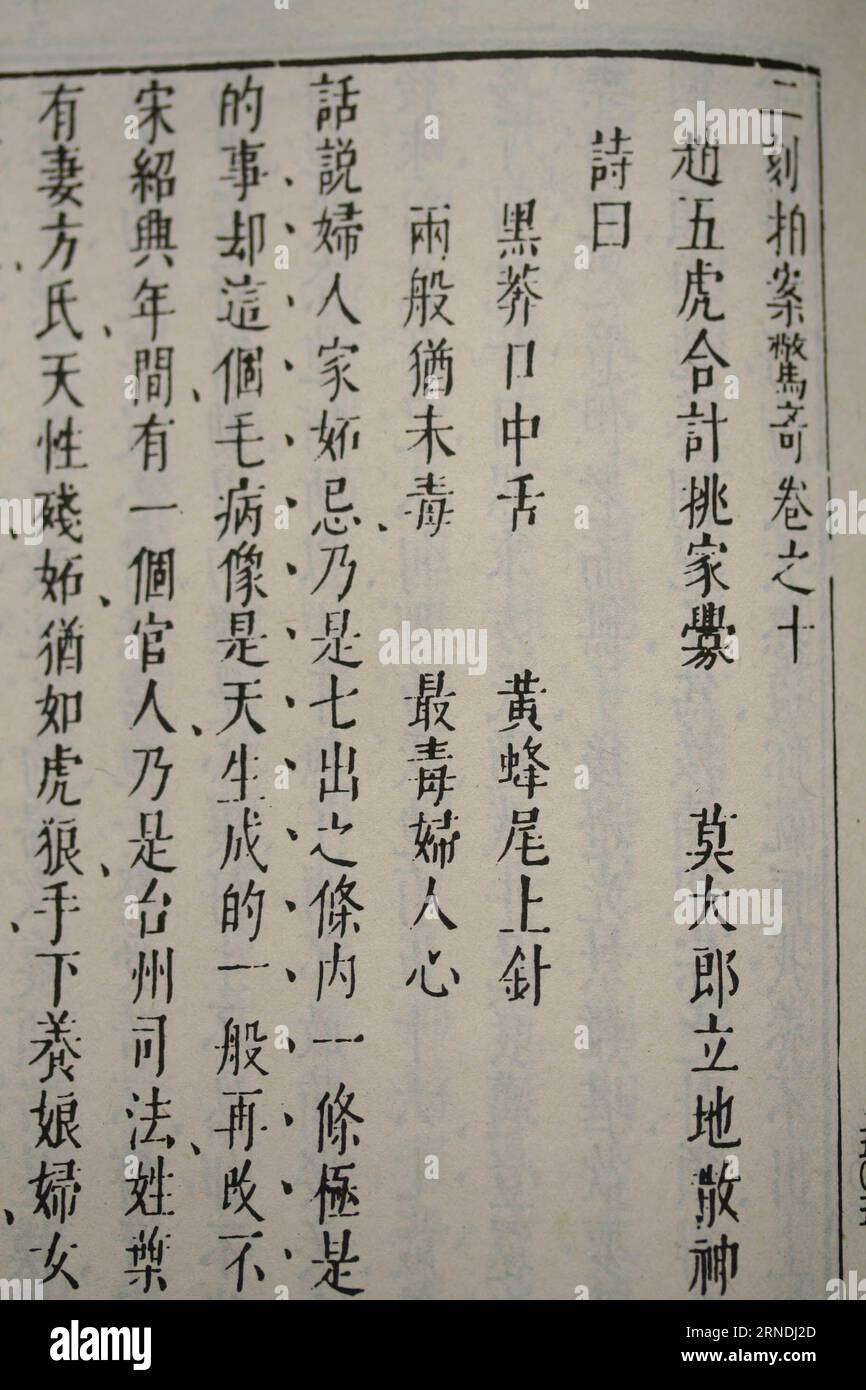 二刻拍案驚奇卷之十
趙五虎合計挑家釁 莫大郎立地散神
詩曰
黑蟒口中舌 黃蜂尾上針
兩般猶未毒 最毒婦人心
話說婦人家妬忌乃是七出之條內一條極是
的事却這個毛病像是天生成的一般再改不
宋紹興年間有一個官人乃是台州司法姓葉
有妻方氏天性殘妬猶如虎狼手下養娘婦女
alamy
Image ID: 1RNDJ2D
www.alamy.com